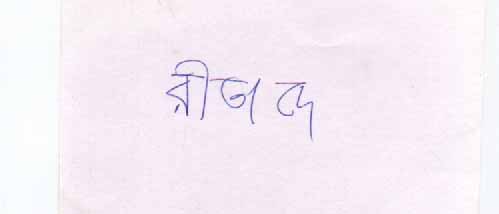 রীতা দে